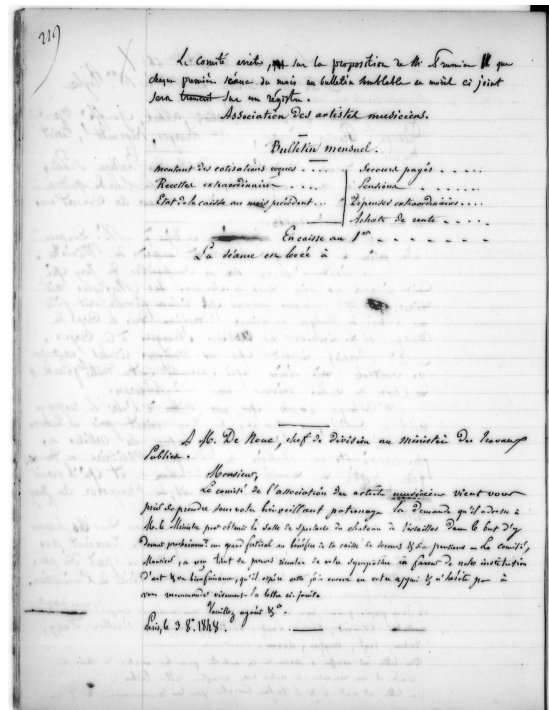 219
Le Comité arrête, sur la proposition de Mr Prumier que
chaque première séance du mois un bulletin semblable au modèl ci joint
sera transcrit sur un régistre.
Association des artistes musiciens.
Bulletin mensuel.
Montant des cotisations reçues . . . . Secours payés . . . . .
Recettes extraordinaires . . . . Pensions . . . . . .
Etat de la caisse au mois précédent . . . Dépenses extraordinaires . . . .
Achats de rente . . . . .
En caisse au 1er . . . . . . .
La séance est levée à
A M. De Noue, chef de division au ministère des Travaux
Publics.
Monsieur,
Le comité de l'association des artistes musiciens vient vous
prier de prendre sous votre bienveillant patronage la demande qu'il adresse à
M. le Ministre pour obtenir la salle de spectacle du chateau de Versailles dans le but d'y
donner prochainemt un grand festival au bénéfice de la caisse de secours & de pensions — Le Comité,
Monsieur, a eu tant de preuves de votre sympathie en faveur de notre institution
d'art & de bienfaisance, qu'il espère cette fois encore en votre appui & n'hésite pas à
vous recommander vivement la lettre ci-jointe.
Veuillez agréer &a.
Paris, le 3 8e. 1848.